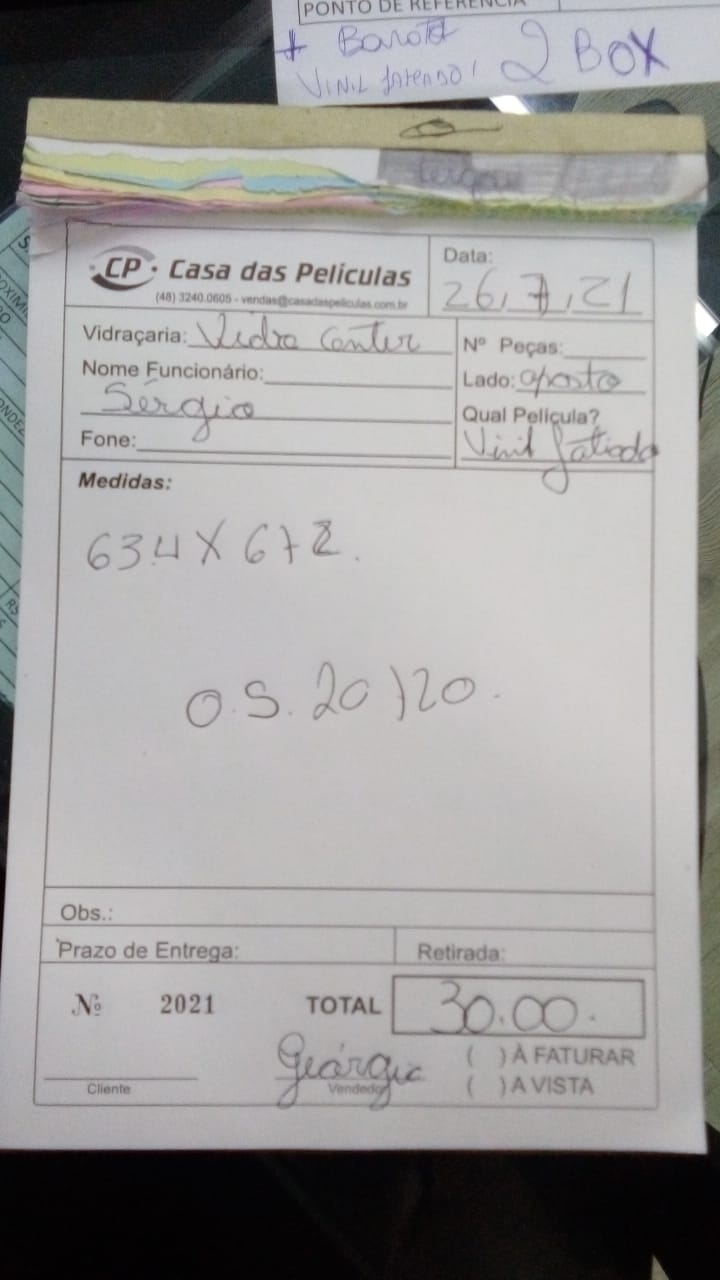 PONTO DE REFERÊNCIA
+
VINIL 2 BOX
CP · Casa das Películas
(48) 3240.0605 - vendas@casadaspeliculas.com.br
Data:
26, 7, 21
Vidraçaria: Vidro Center
Nº Peças:
Nome Funcionário:
Lado: oposto
Sérgio
Qual Película?
Fone:
Vinil Jatiado
Medidas:
634 X 672.
O.S. 20120.
Obs.:
Prazo de Entrega:
Retirada:
Nº 2021 TOTAL 30.00.
Geórgia
( ) À FATURAR
Cliente
Vendedor
( ) A VISTA